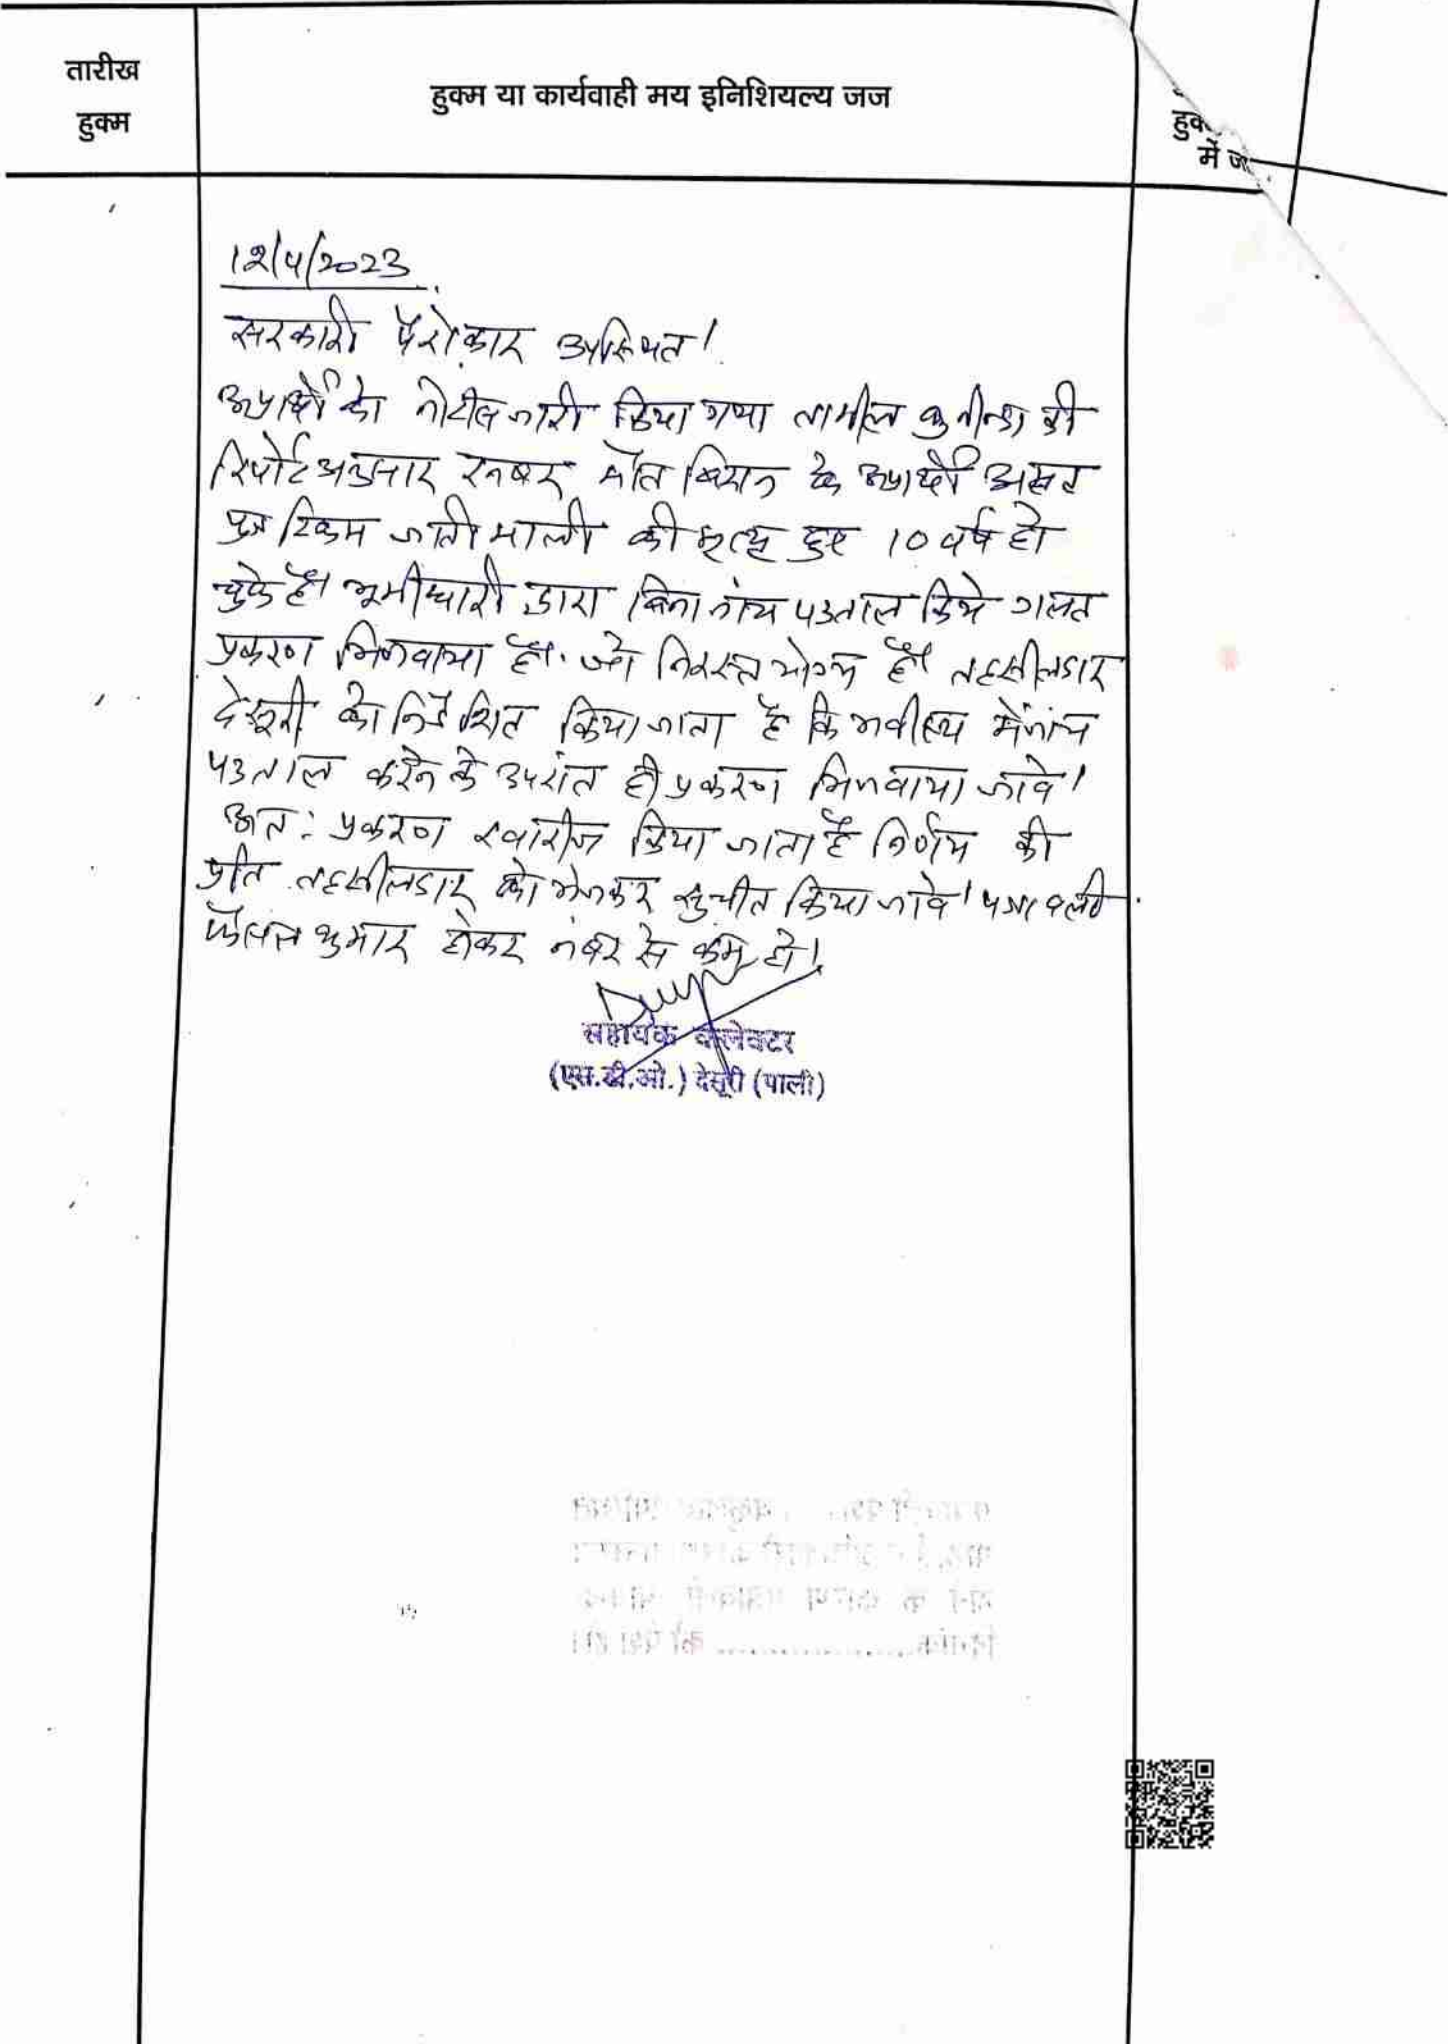 तारीख
हुक्म
हुक्म या कार्यवाही मय इनिशियल्य जज
में
12/4/2023
सरकारी पैरोकार उपस्थित।
अप्रार्थी को नोटीस जारी किया गया तामील कुनीन्दा की
रिपोर्ट अनुसार मौत के अप्रार्थी
पुत्र जाती माली की मृत्यू हुए 10 वर्ष हो
चुके है। भूमीधारी द्वारा बिना जांच पडताल किये गलत
प्रकरण भिजवाया है। जो निरस्त योग्य है। तहसीलदार
देसूरी को निर्देशित किया जाता है कि भवीष्य में जांच
पडताल करने के उपरांत ही प्रकरण भिजवाया जावे।
अत: प्रकरण खारीज किया जाता है निर्णय की
प्रति तहसीलदार को भेजकर सुचीत किया जावे। पत्रावली
फैसल शुमार होकर नंबर से कम हो।
सहायक कलेक्टर
(एस.डी.ओ.) देसूरी (पाली)